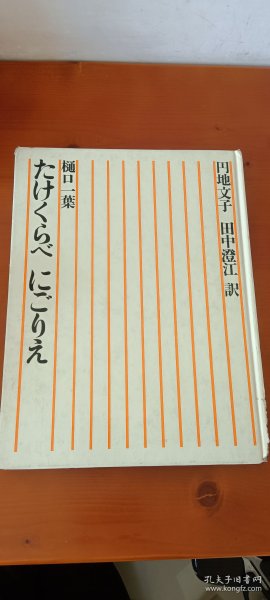 円地文子 田中澄江 訳
樋口一葉
たけくらべ にごりえ
孔夫子旧书网
www.kongfz.com